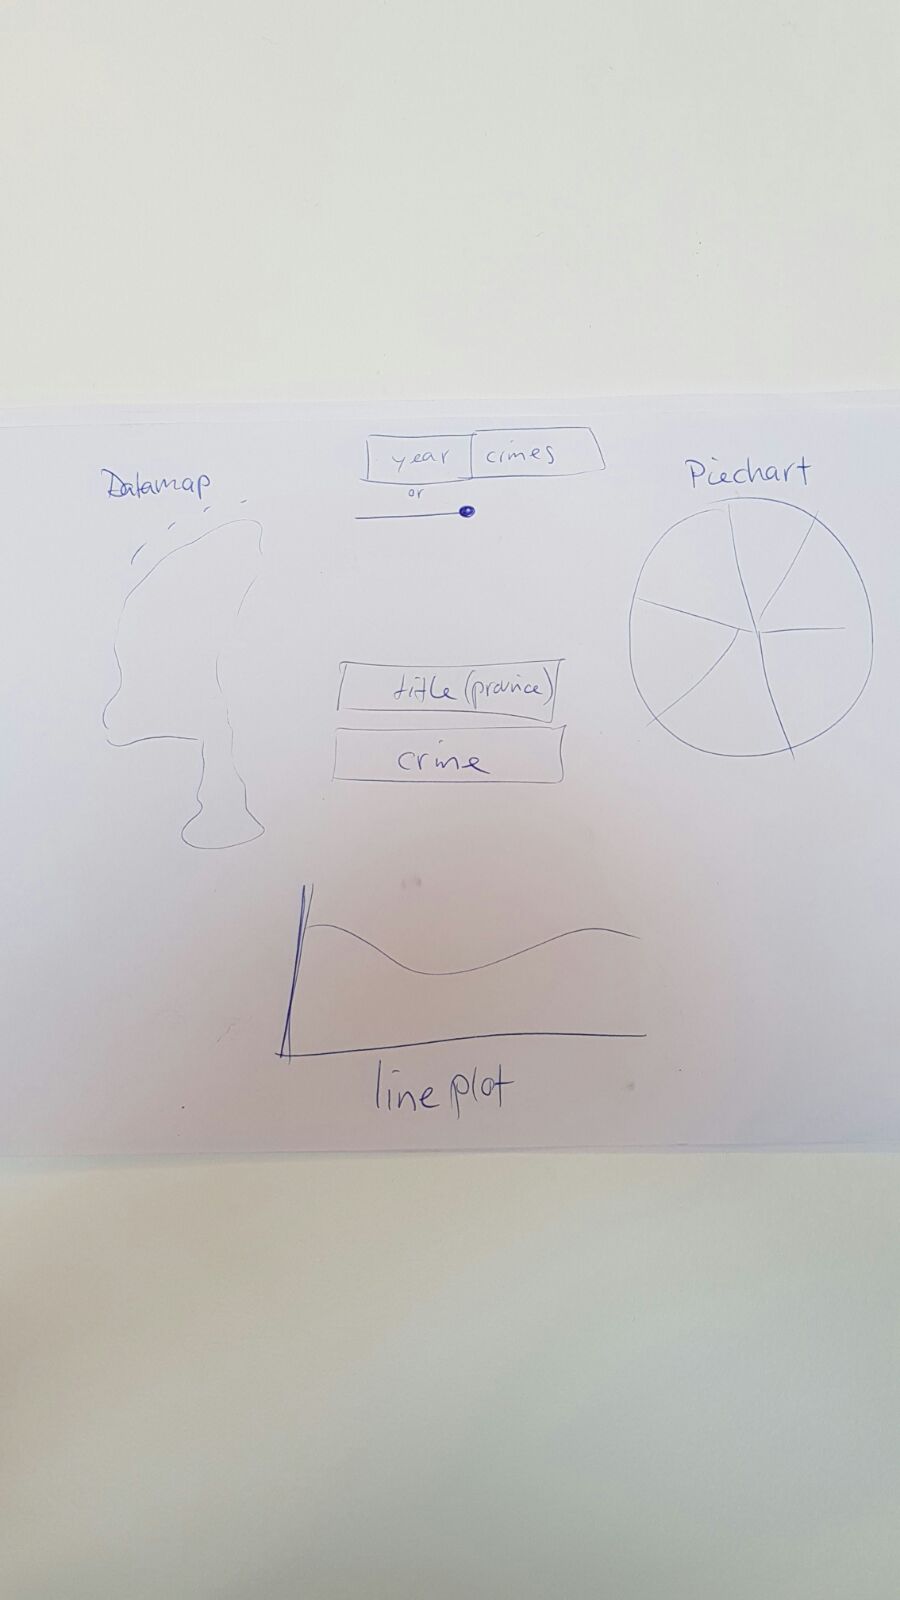 Datamap
year cimes
or
Piechart
title (province)
crime
line plot